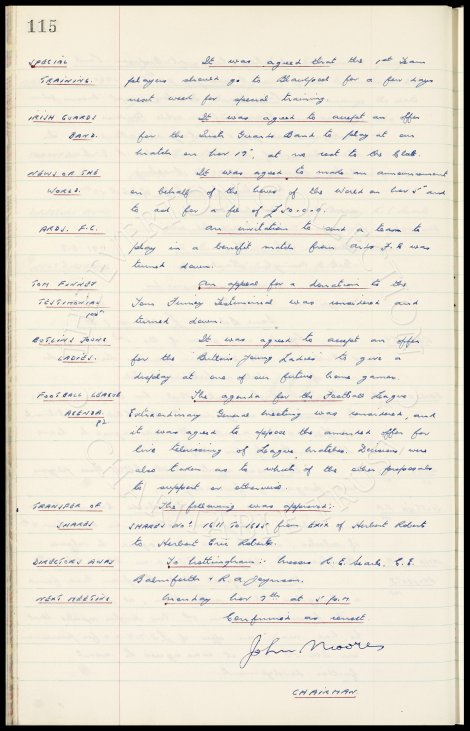 115
SPECIAL TRAINING.
It was agreed that the 1st Team
players should go to Blackpool for a few days
next week for special training.
IRISH GUARDS BAND.
It was agreed to accept an offer
for the Irish Guards Band to play at our
match on Nov 19th, at no cost to the Club.
NEWS OF THE WORLD.
It was agreed to make an announcement
on behalf of the News of the World on Nov 5th and
to ask for a fee of £50.0.0.
ARDS. F.C.
An invitation to send a team to
play in a benefit match from Ards F.C. was
turned down.
TOM FINNEY TESTIMONIAL
An appeal for a donation to the
Tom Finney Testimonial was considered and
turned down.
BUTLINS YOUNG LADIES.
It was agreed to accept an offer
for the "Butlins Young Ladies" to give a
display at one of our future home games.
FOOTBALL LEAGUE AGENDA
The agenda for the Football League
Extraordinary General Meeting was considered, and
it was agreed to oppose the amended offer for
live televising of League matches. Decisions were
also taken as to which of the other proposals
to support or otherwise.
TRANSFER OF SHARES
The following was approved:-
SHARES Nos. 1611 To 1615 from Exix of Herbert Roberts
to Herbert Eric Roberts.
DIRECTORS AWAY
To Nottingham:- Messrs R. E. Searle, C. E.
Balmforth & R. A.
NEXT MEETING.
Monday Nov 7th at 5 p.m.
Confirmed as correct
John Moores
CHAIRMAN